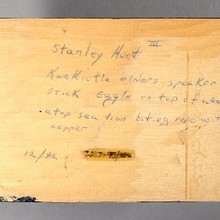 Stanley Hunt III
Kwakiutle elders speaker
stick eagle on top of whale
atop sea lion biting nose with
copper
12/92